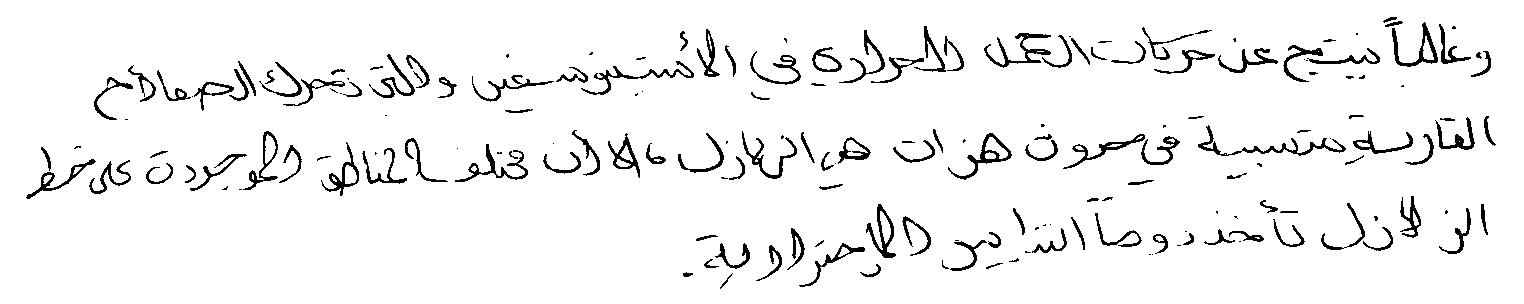 وغالباً ينتج عن حركات الحمل الحرارية في الأستينوسفير والتي تحرك الصفائح
القارية متسببة في حدوث هزات هي الزلازل، إلا أن مختلف المناطق الموجودة على خط
الزلازل تأخذ دوماً التدابير الإحترازية.